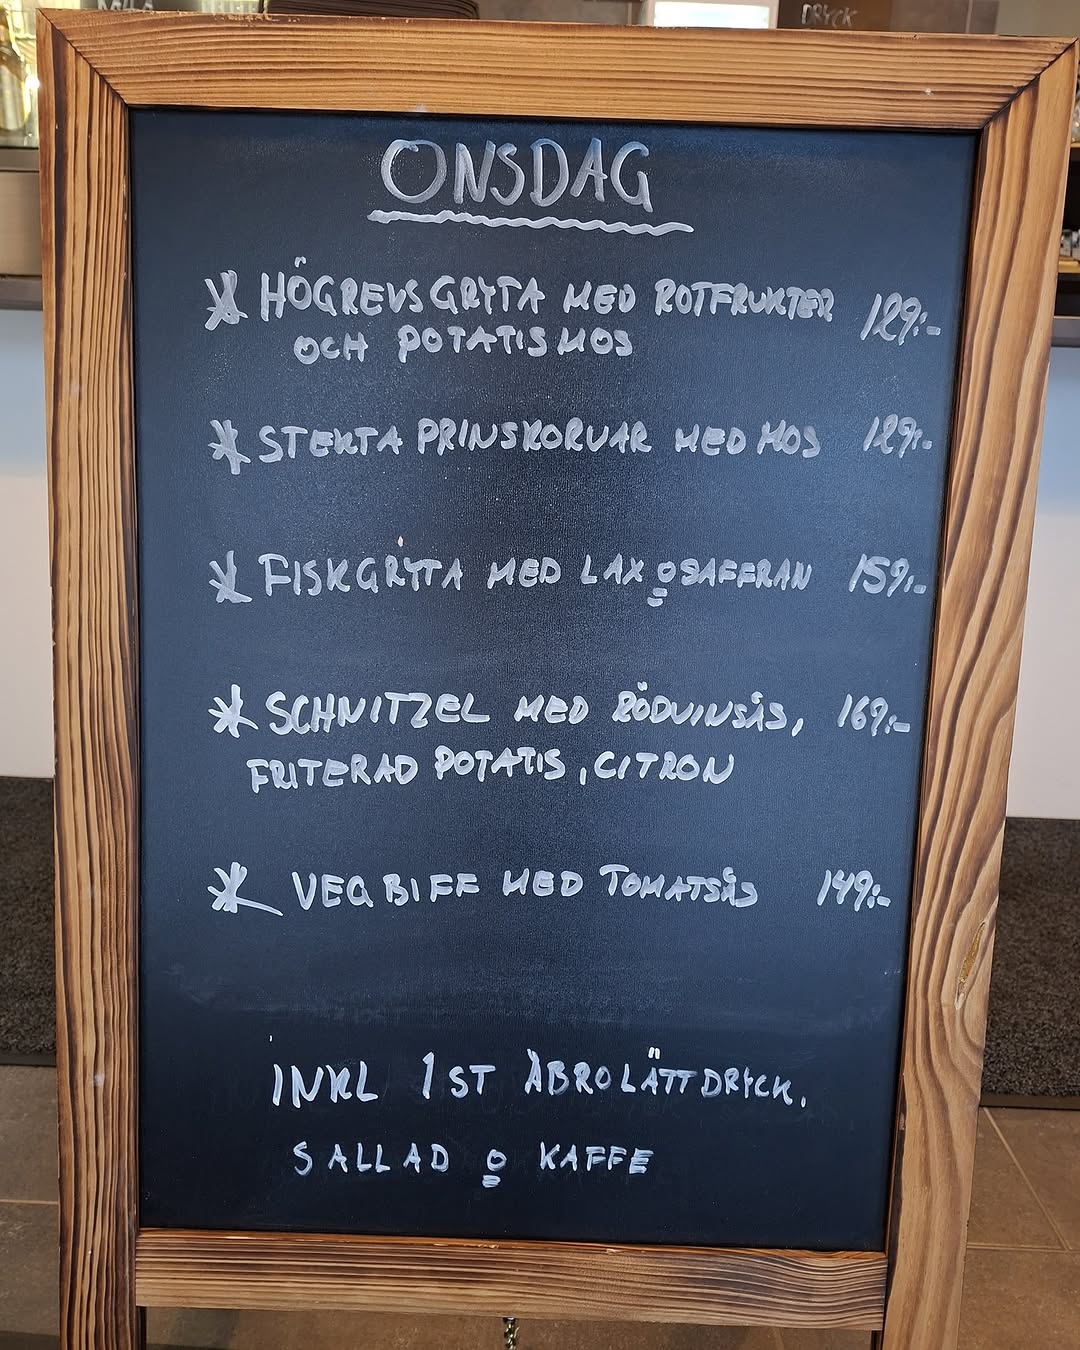 DRYCK
ONSDAG
* HÖGREVSGRYTA MED ROTFRUKTER 129:-
OCH POTATISMOS
* STEKTA PRINSKORVAR MED MOS 129:-
* FISKGRYTA MED LAX o SAFFRAN 159:-
* SCHNITZEL MED RÖDVINSÅS, 169:-
FRITERAD POTATIS, CITRON
* VEGBIFF MED TOMATSÅS 149:-
INKL 1ST ÅBRO LÄTTDRYCK.
SALLAD o KAFFE